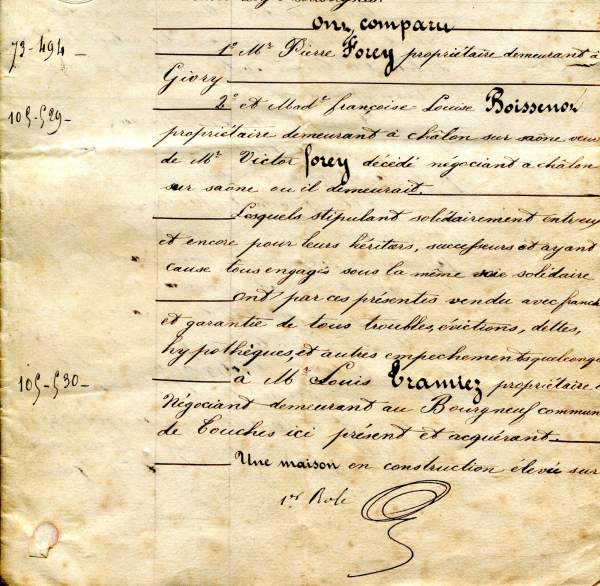 Ont comparu
73-494 - 1º Mr Pierre Forey propriétaire demeurant à
Givry
105-529- 2º et Made françoise Louise Boissenot
propriétaire demeurant à châlon sur saône veuve
de Mr Victor forey décédé négociant a châlon
sur saône ou il demeurait.
Lesquels stipulant solidairement entr'eux
et encore pour leurs héritiers, successeurs et ayant
cause tous engagés sous la même solidaire
ont par ces présentes vendu avec
et garantie de tous troubles, évictions, dettes,
hypothèques, et autres empechements quelconques
105-530- à Mr Louis Tramiez propriétaire
Négociant demeurant au Bourgneuf commun
de Touches ici présent et acquérant.
Une maison en construction élevée sur
1er Role